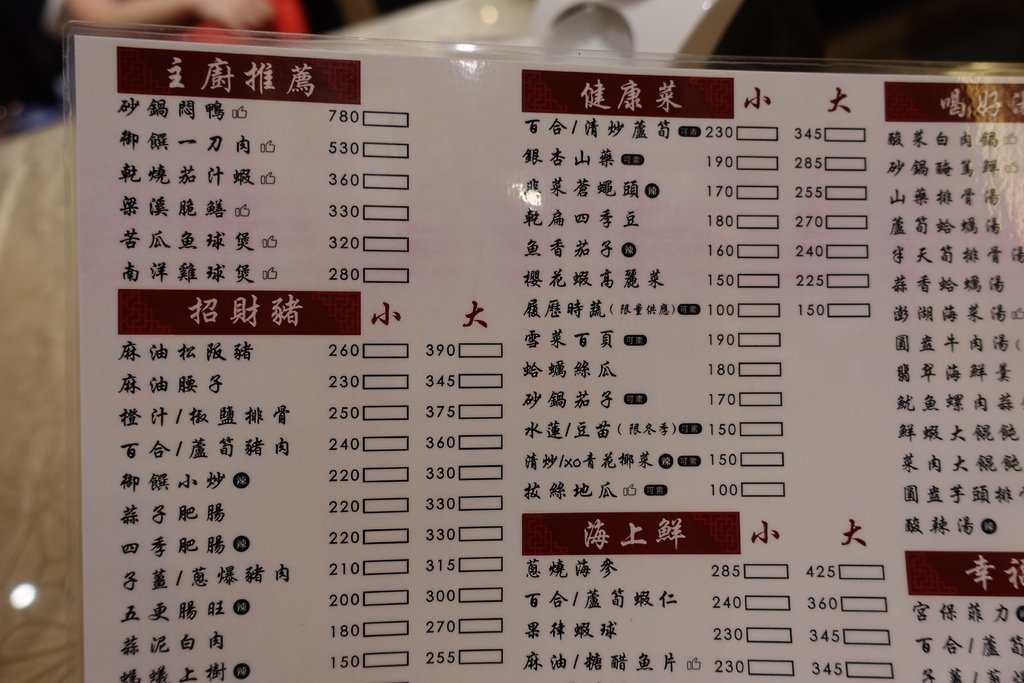 主廚推薦
砂鍋悶鴨 780
御饌一刀肉 530
乾燒茄汁蝦 360
梁溪脆鱔 330
苦瓜魚球煲 320
南洋雞球煲 280
招財豬 小 大
麻油松阪豬 260 390
麻油腰子 230 345
橙汁/椒鹽排骨 250 375
百合/蘆筍豬肉 240 360
御饌小炒 辣 220 330
蒜子肥腸 220 330
四季肥腸 辣 220 330
子薑/蔥爆豬肉 210 315
五更腸旺 辣 200 300
蒜泥白肉 180 270
螞蟻上樹 辣 150 255
健康菜 小 大
百合/清炒蘆筍 可素 230 345
銀杏山藥 可素 190 285
韭菜蒼蠅頭 辣 170 255
乾扁四季豆 180 270
魚香茄子 辣 160 240
櫻花蝦高麗菜 150 225
履歷時蔬(限量供應) 可素 100 150
雪菜百頁 可素 190
蛤蠣絲瓜 180
砂鍋茄子 可素 170
水蓮/豆苗(限冬季) 可素 150
清炒/xo青花椰菜 辣 可素 150
拔絲地瓜 可素 100
海上鮮 小 大
蔥燒海參 285 425
百合/蘆筍蝦仁 240 360
果律蝦球 230 345
麻油/糖醋魚片 230 345
喝好湯
酸菜白肉鍋
砂鍋醃篤鮮
山藥排骨湯
蘆筍蛤蠣湯
半天筍排骨湯
蒜香蛤蠣湯
澎湖海菜湯
圓盅牛肉湯(
翡翠海鮮羹
魷魚螺肉蒜
鮮蝦大餛飩
菜肉大餛飩
圓盅芋頭排骨
酸辣湯 辣
幸福
宮保菲力
百合/蘆筍
子薑/蔥